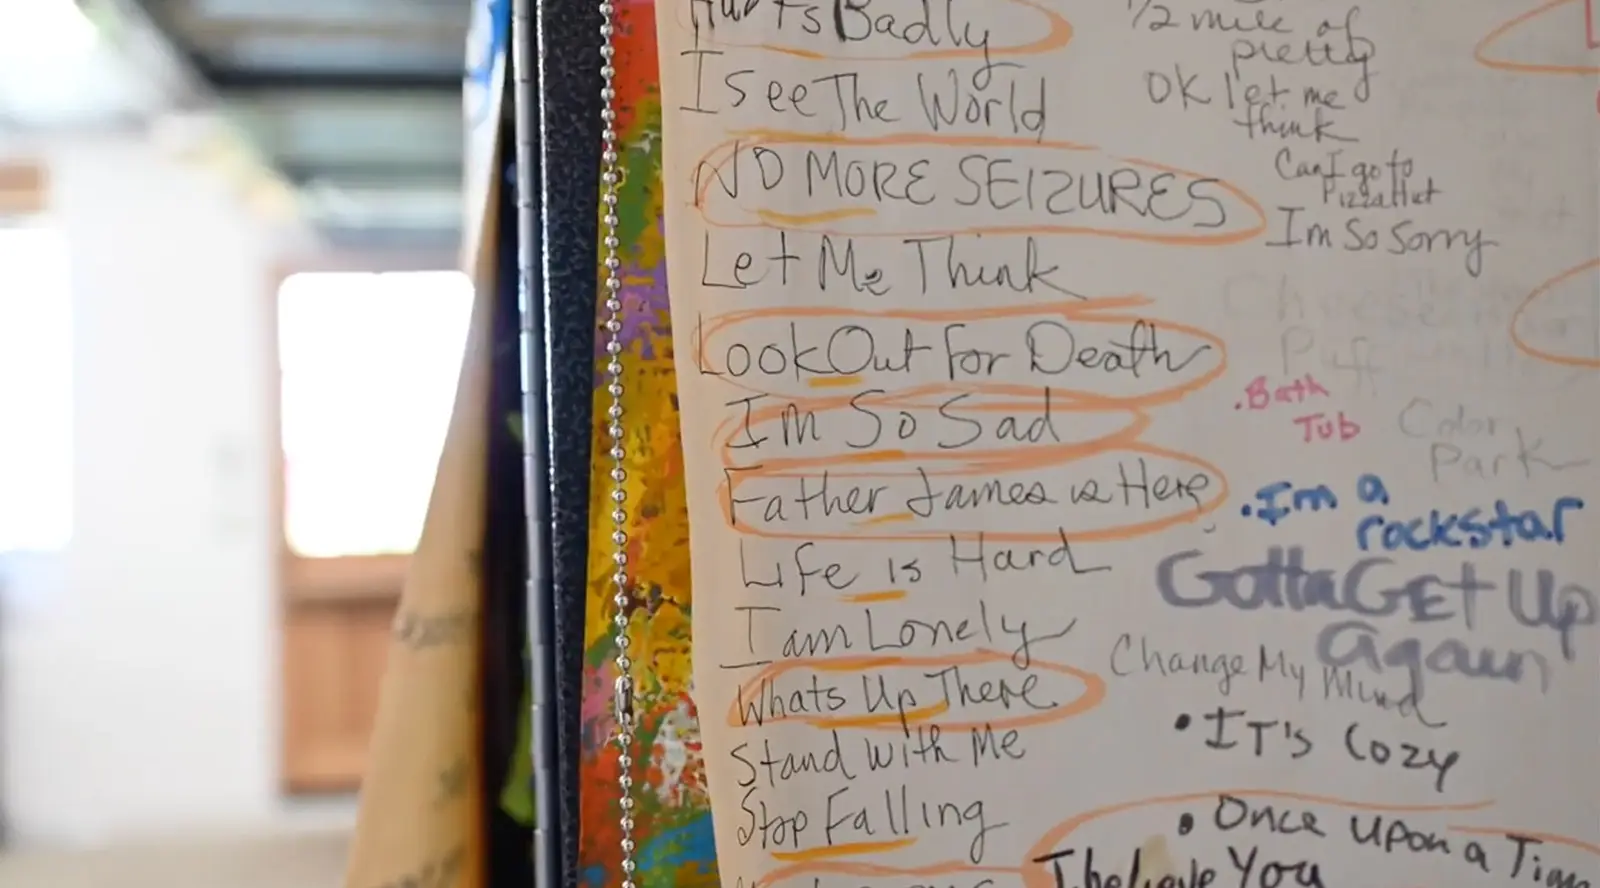 Hurts Badly
I see The World
NO MORE SEIZURES
Let Me Think
Look Out For Death
Im So Sad
Father James is Here
Life is Hard
I am Lonely
Whats Up There
Stand with Me
Stop Falling
1/2 mile of
pretty
OK let me
think
Can I go to
Pizza Hut
Im So Sorry
Puff
. Bath
Tub
Color
Park
. Im a
rockstar
Gotta GEt Up
Again
Change My Mind
• IT's Cozy
• Once upon a Time
I believe You